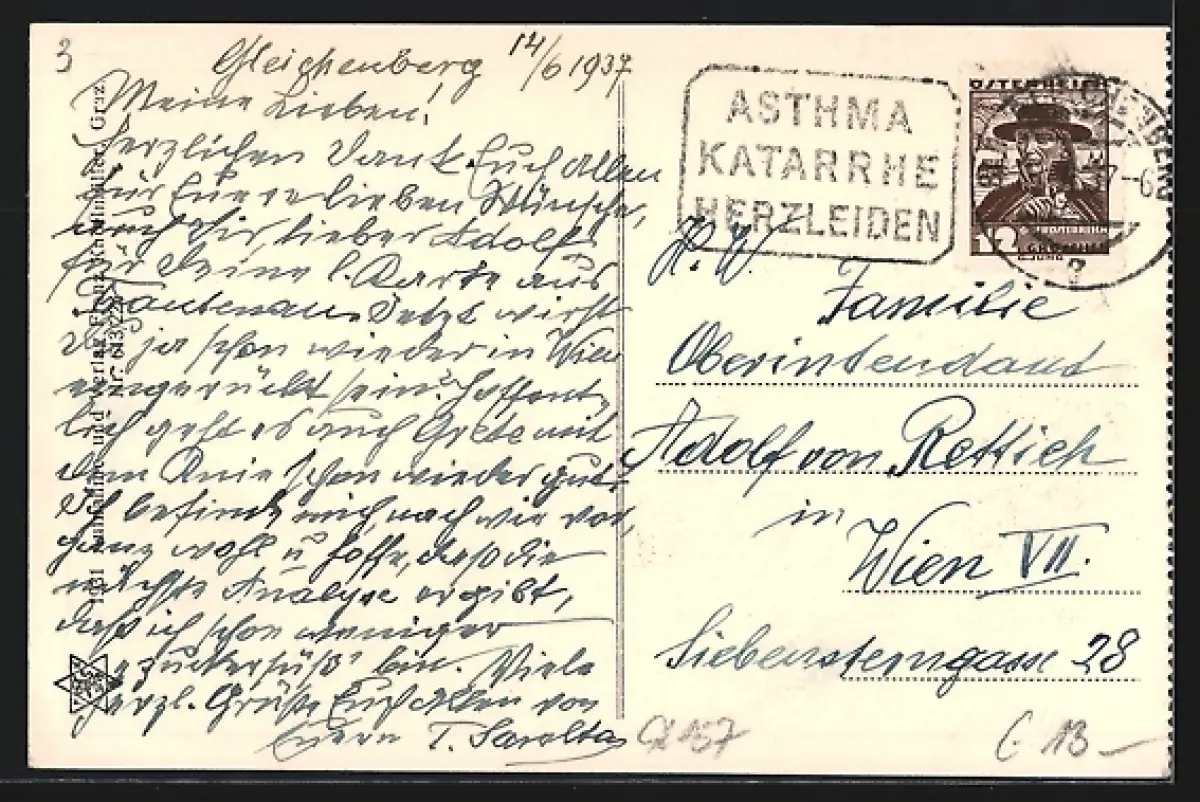 3
Gleichenberg 14/6 1937
Meine Lieben!
Herzlichen Dank Euch Allen
für Eure lieben Wünsche,
auch Dir, lieber Adolf
für Deine l. Karte aus
Trautenau. Jetzt wirst
Du ja schon wieder in Wien
eingerückt sein? Hoffent-
lich geht es auch Grete mit
dem Knie schon wieder gut.
Ich befinde mich nach wie vor,
ganz wohl u hoffe, daß die
nächste Analyse ergibt,
daß ich schon weniger
"zuckersüß" bin. Viele
herzl. Grüße Euch Allen von
Eurer T. Sarolta
1931 Aufnahme und Verlag Franz Knollmüller, Graz
Nr. 613/22
ASTHMA
KATARRHE
HERZLEIDEN
ÖSTERREICH
12 GROSCHEN
H. W.
Familie
Oberintendant
Adolf von Rettich
in
Wien VII.
Siebensterngasse 28